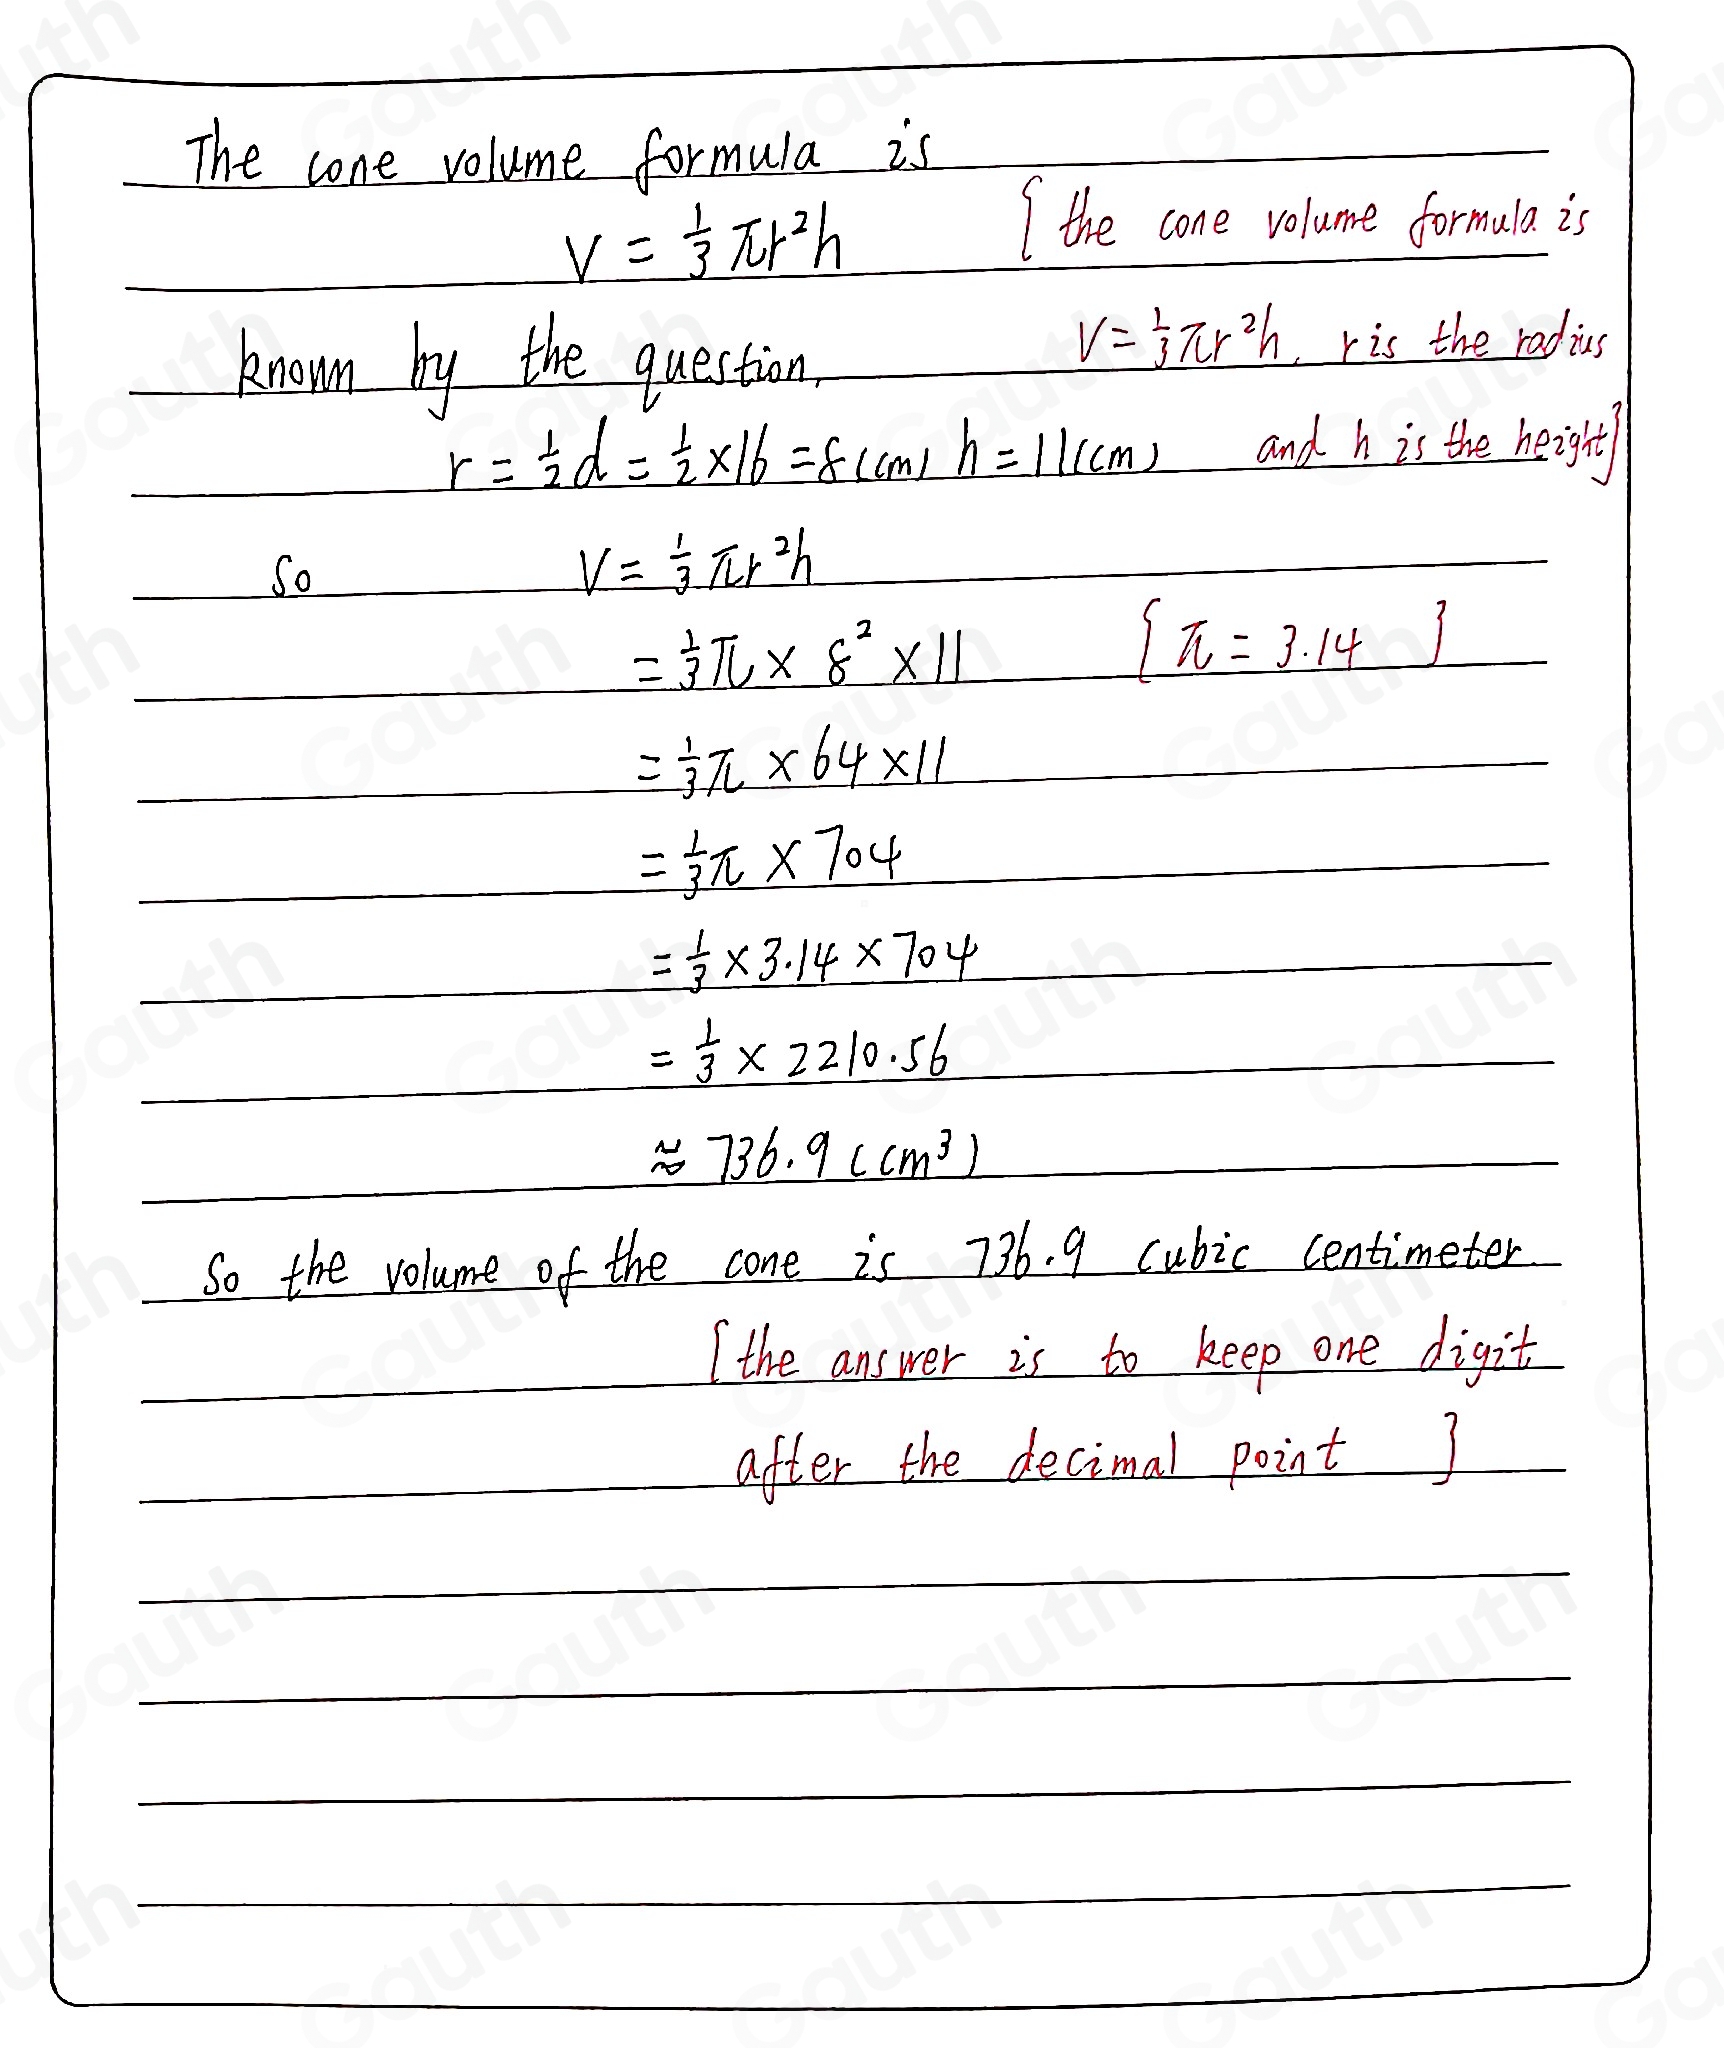 The cone volume formula is
V = 1/3 πr²h
[the cone volume formula is
V = 1/3 πr²h, r is the radius
and h is the height]
known by the question,
r = 1/2 d = 1/2 × 16 = 8 (cm) h = 11 (cm)
So V = 1/3 πr²h
= 1/3 π × 8² × 11 [π = 3.14]
= 1/3 π × 64 × 11
= 1/3 π × 704
= 1/3 × 3.14 × 704
= 1/3 × 2210.56
≈ 736.9 (cm³)
So the volume of the cone is 736.9 cubic centimeter.
[the answer is to keep one digit
after the decimal point]
Gauth